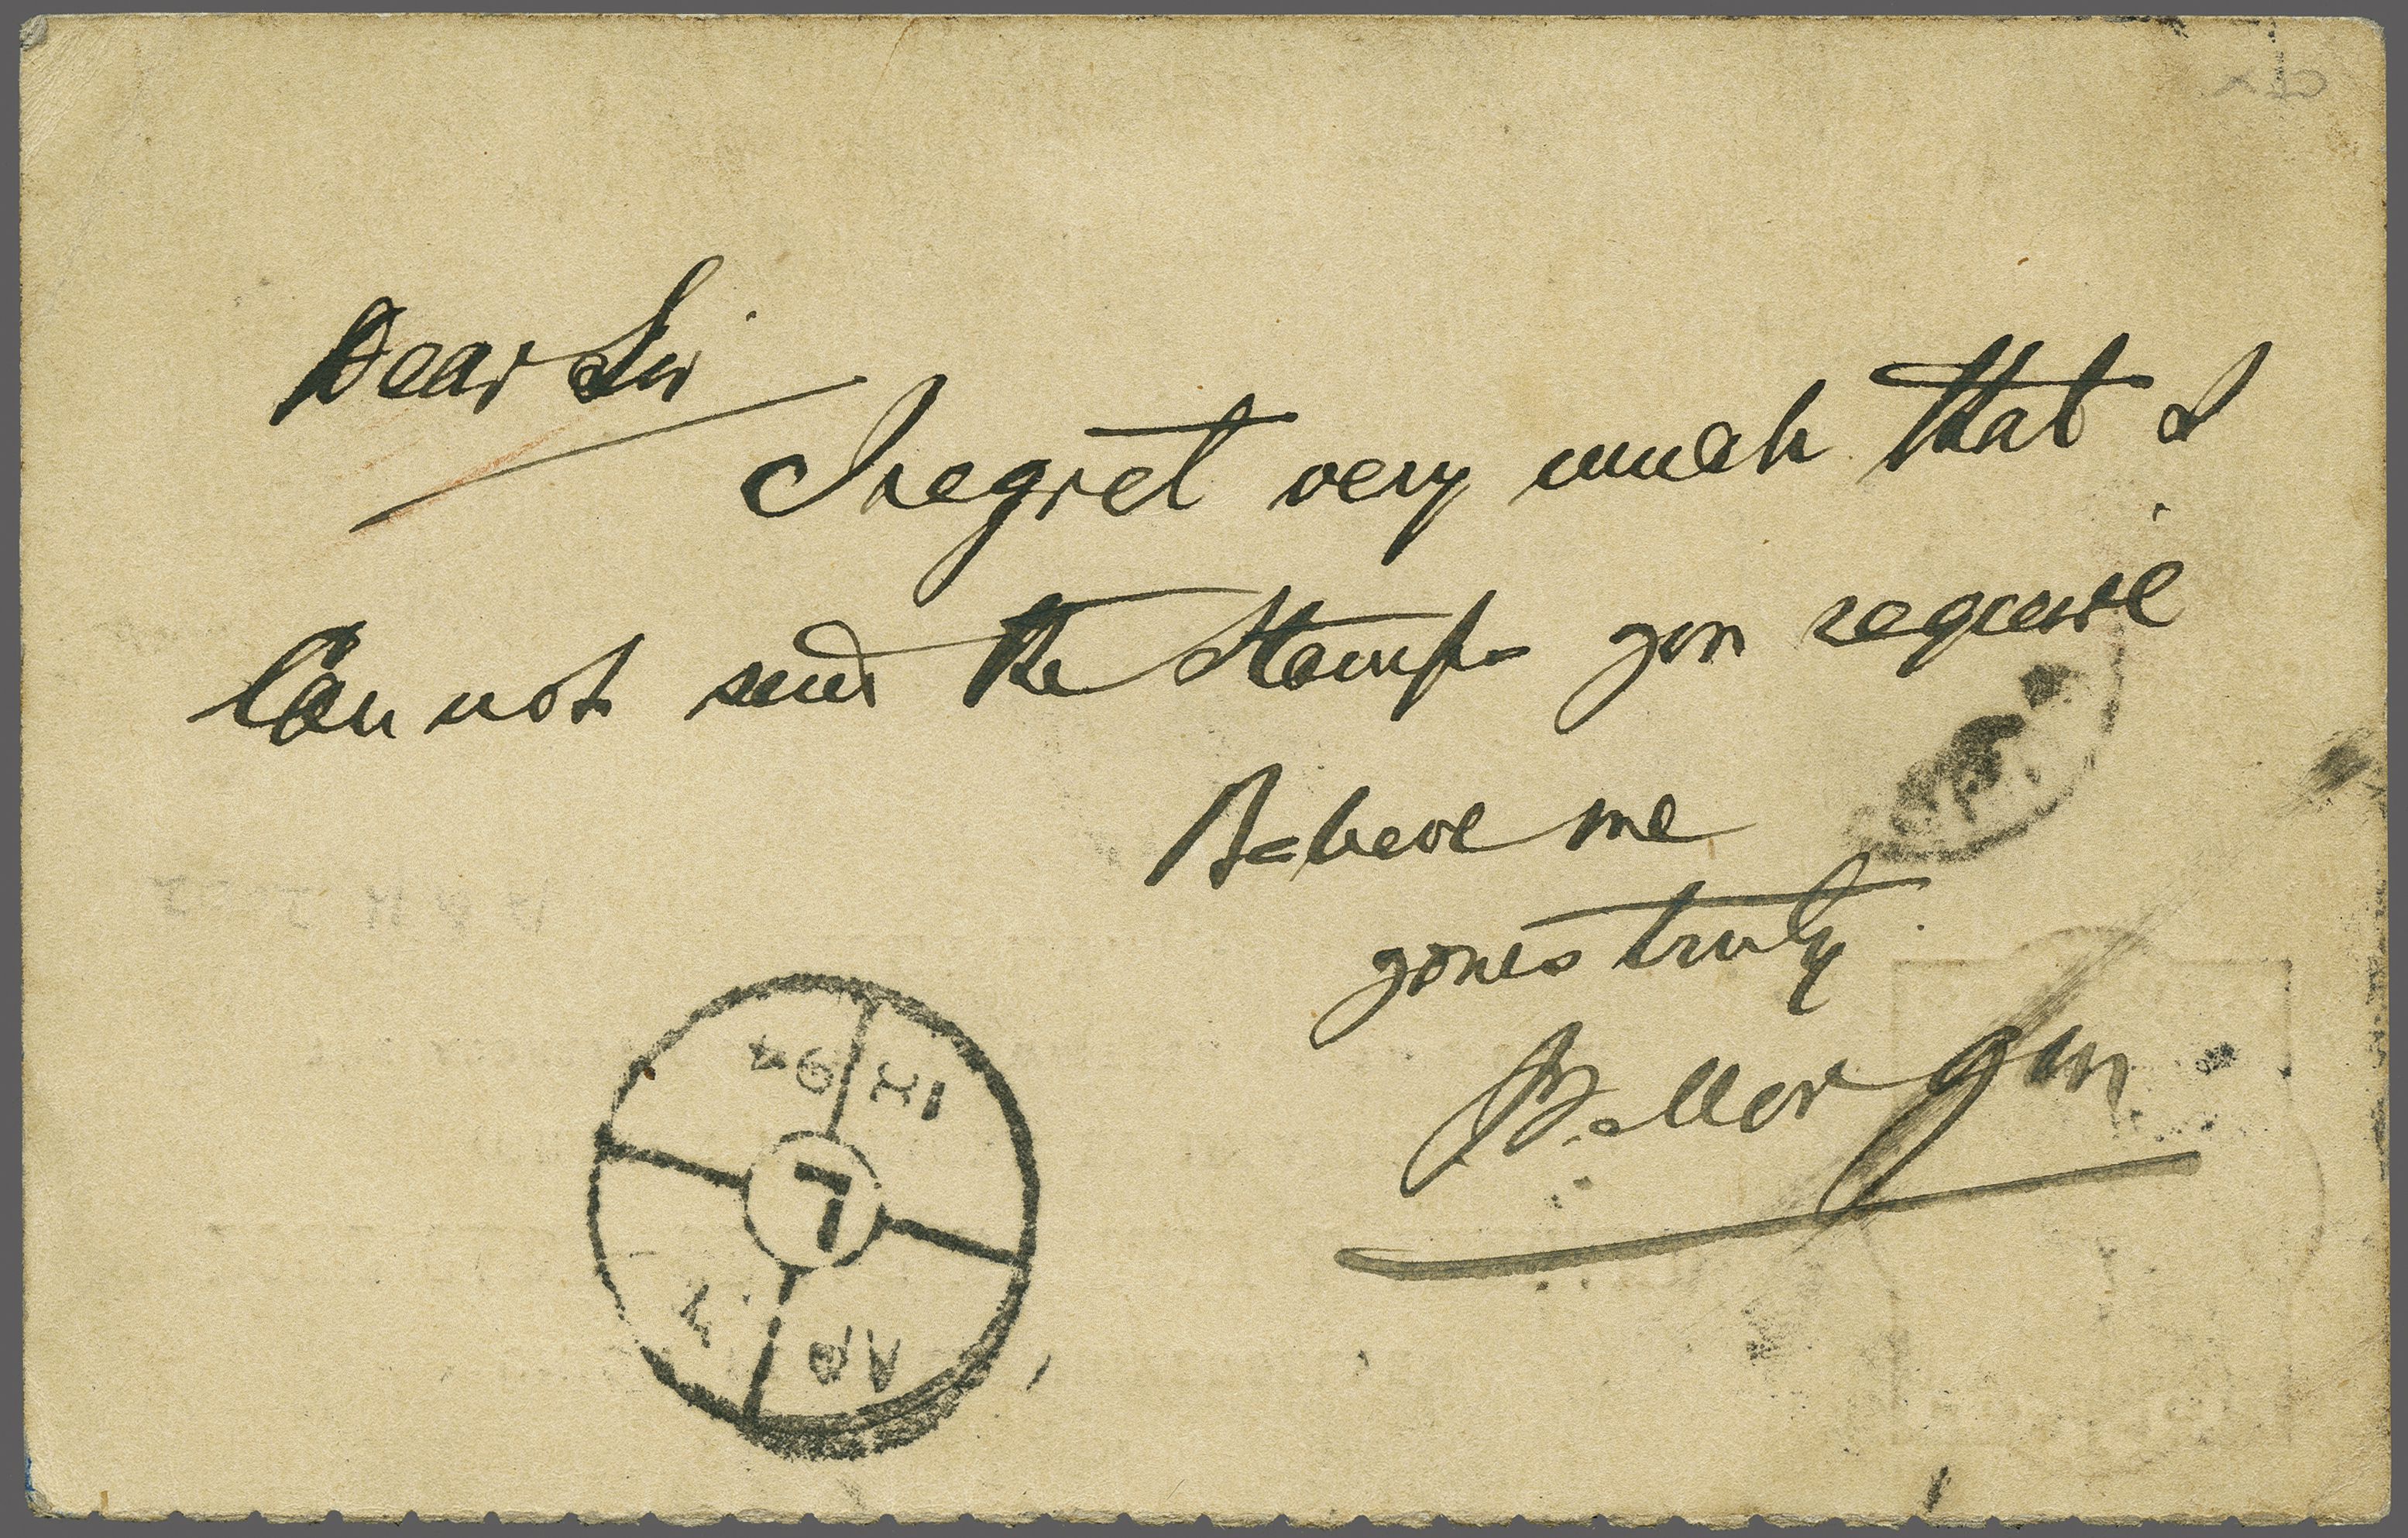 Dear Sir
I regret very much that I
Can not send the Stamps you require
Believe me
yours truly
B. Morgan
L
IX 94